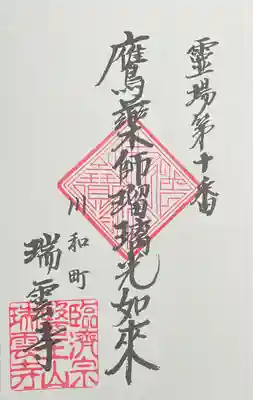 靈場第十番
鷹藥師瑠璃光如來
川和町
瑞雲寺
臨濟宗
山
瑞雲寺